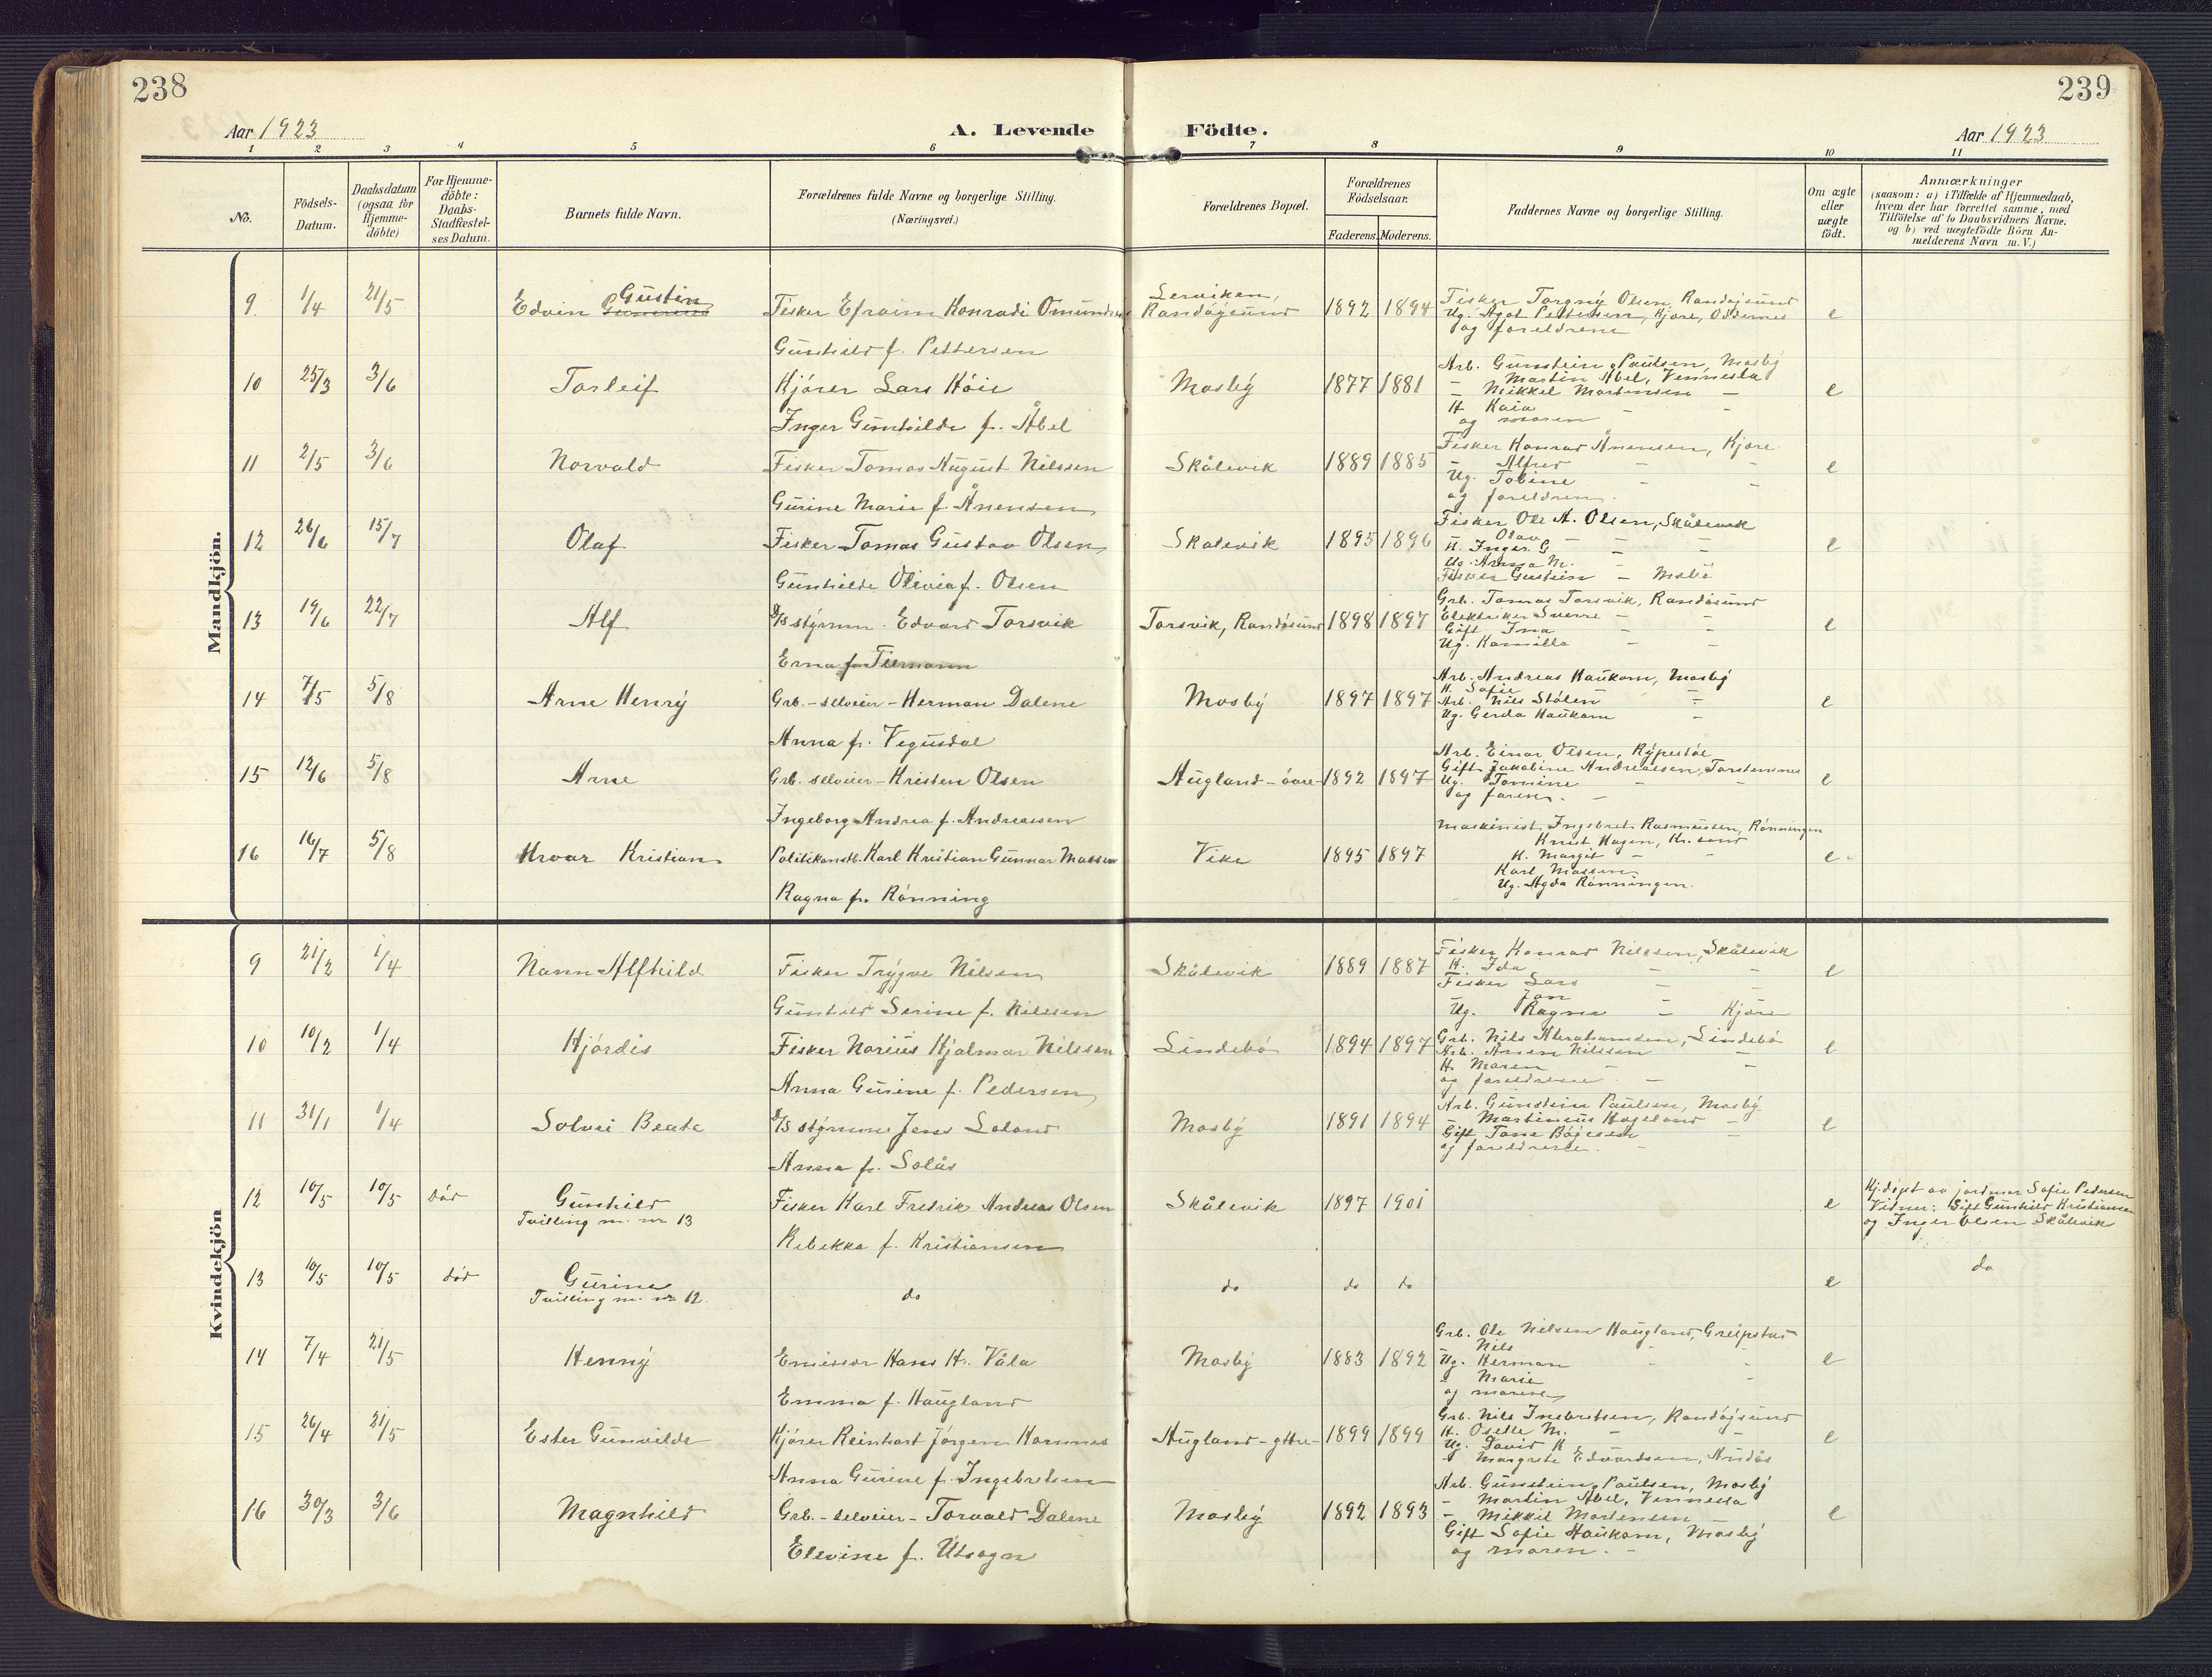 238
239
Aar 1923
A. Levende Födte.
Aar 1923
1 2 3 4 5 6 7 8 9 10 11
No.
Födsels-Datum.
Daabsdatum (ogsaa for Hjemme-döbte)
For Hjemme-döbte: Daabs-Stadfæstel-ses Datum.
Barnets fulde Navn.
Forældrenes fulde Navne og borgerlige Stilling.
(Næringsvei.)
Forældrenes Bopæl.
Forældrenes Födselsaar.
Faderens. Moderens.
Faddernes Navne og borgerlige Stilling.
Om ægte eller uægte födt.
Anmærkninger
(saasom: a) i Tilfælde af Hjemmedaab,
hvem der har forrettet samme, med
Tilföielse af to Daabsvidners Navne.
og b) ved uægtefödte Börn An-
melderens Navn m. V.)
Mandkjön.
9 1/4 21/5 Edvin Gustin Fisker Efraim Konradi Omundsen Randöysund 1892 1894 e
Gunhild f. Pettersen
Fisker Torgny Olsen, Randöjsund
Ug. Agot Pettersen, Kjøre, Oddernes
og foreldrene
10 25/3 3/6 Torleif Kjører Lars Høie Mosby 1877 1881 e
Inger Gunhilde f. Åbel
Arb. Gunstein Paulsen, Mosby
- Martin Abel, Vennesla
- Mikkel Mortensen -
H. Kaia - -
og moren
11 2/5 3/6 Norvald Fisker Tomas August Nilssen Skålevik 1889 1885 e
Gurine Marie f. Ånensen
Fisker Konrad Ånensen, Kjøre
- Alfred - -
Ug. Tobine - -
og foreldrene.
12 26/6 15/7 Olaf Fisker Tomas Gustav Olsen Skålevik 1895 1896 e
Gunhilde Olivia f. Olsen
Fisker Ole A. Olsen, Skålevik
- Olav - -
H. Inger G - -
Ug. Anna M. - -
Fisker Gustein -
13 19/6 22/7 Alf D/S styrm. Edvard Torsvik Torsvik, Randøsund 1898 1897 e
Erna f. Tiemann
Grb. Tomas Torsvik, Randøsund
Elektriker Sverre - -
Gift Ina - -
Ug. Kamilla - -
14 7/5 5/8 Arne Henry Grb. - selveier - Herman Dalene Mosby 1897 1897 e
Anna f. Vegusdal
Arb. Andreas Haukom, Mosby
H. Sofie -
Arb. Nils Stølen -
Ug. Gerda Haukom -
15 12/6 5/8 Arne Grb. selveier - Kristen Olsen Augland - øvre - 1892 1897 e
Ingeborg Andrea f. Andreassen
Arb. Einar Olsen, Rypestøl
Gift Jakobine Andreassen, Torstennes
Ug. Tomine - -
og faren. -
16 16/7 5/8 Hroar Kristian Politikonstb. Karl Kristian Gunnar Madsen Vike 1895 1897 e
Ragna f. Rønning
Maskinist Ingebret Rasmussen, Rønningen
Knut Hagen, Kr.sand
H. Margit - -
Karl Madsen
Ug. Agda Rønningen.
Kvindekjön
9 21/2 1/4 Nann Alfhild Fisker Trygve Nilsen Skålevik 1889 1887 e
Gunhild Serine f. Nilssen
Fisker Konrad Nilssen, Skålevik
H. Ida - -
Fisker Lars - -
- Jan
Ug. Ragna - Kjøre
10 10/2 1/4 Hjørdis Fisker Norius Hjalmar Nilssen Lindebø 1894 1897 e
Anna Gurine f. Pedersen
Grb. Nils Abrahamsen, Lindebø
Arb. Anen Nilssen -
H. Maren - -
og foreldrene. -
11 31/1 1/4 Solvei Beate D/S styrm. Jens Loland Mosby 1891 1894 e
Anna f. Solås
Arb. Gunstein Paulsen, Mosby
- Martinius Hageland -
Gift Tone Bøjesen -
og foreldrene. -
12 10/5 10/5 død Gunhild Fisker Karl Fredrik Andreas Olsen Skålevik 1897 1901 e
Tvilling m. nr 13
Rebekka f. Kristiansen
Hj.døpt av jordmor Sofie Pedersen
Vidner: Gift Gunhild Kristiansen
og Inger Olsen Skålevik
13 10/5 10/5 død Gurine do do do do e do
Tvilling m. nr 12.
14 7/4 21/5 Henny Emissær Hans H. Våla Mosby 1883 1892 e
Emma f. Haugland
Grb. Ole Nielsen Haugland, Greipstad
- Nils - -
Ug. Herman - -
- Marie -
og moren
15 26/4 21/5 Ester Gunvilde Kjører Reinhart Jørgen Hamnes Augland - ytre - 1899 1899 e
Anna Gurine f. Ingebretsen
Grb. Nils Inebretsen, Randøjsund
H. Oselle M. - -
Ug. David R. - -
- Margrete Edvardsen, Andås
16 30/3 3/6 Magnhild Grb. - selveier - Torvald Dalene Mosby 1892 1893 e
Elevine f. Utsogn
Arb. Gunstein Paulsen, Mosby
- Martin Abel, Vennesla
- Mikkel Mortensen -
Gift Sofie Haukom, Mosby
og moren. -